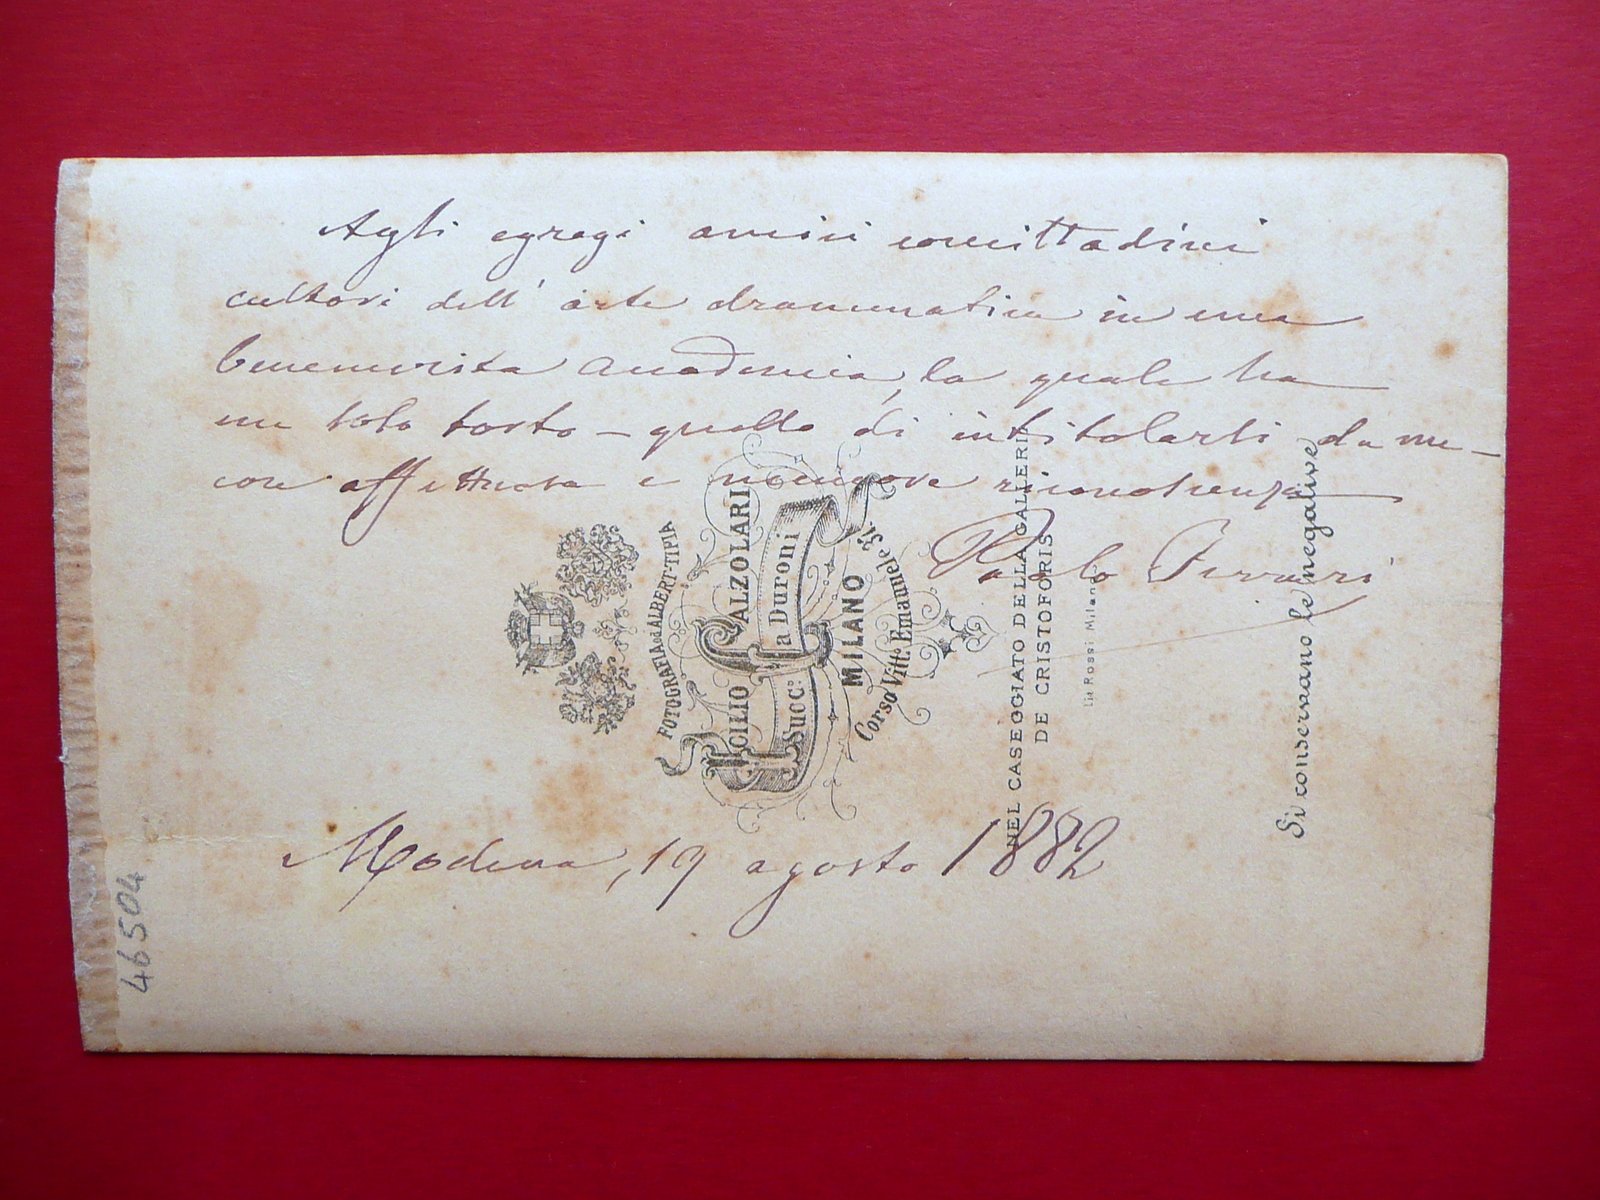 Agli egregi amici concittadini
cultori dell' arte drammatica in una
benemerita accademia, la quale ha
un solo torto – quello di intitolarsi da me –
con affettuosa e riconoscenza
Paolo Ferrari
Modena, 19 agosto 1882
46504
FOTOGRAFIA ed ALBERTTIPIA
ICILIO CALZOLARI
Succ. a Duroni
MILANO
Corso Vitt. Emanuele 31.
NEL CASEGGIATO DELLA GALLERIA
DE CRISTOFORIS
Lit Rossi Milano
Si conservano le negative